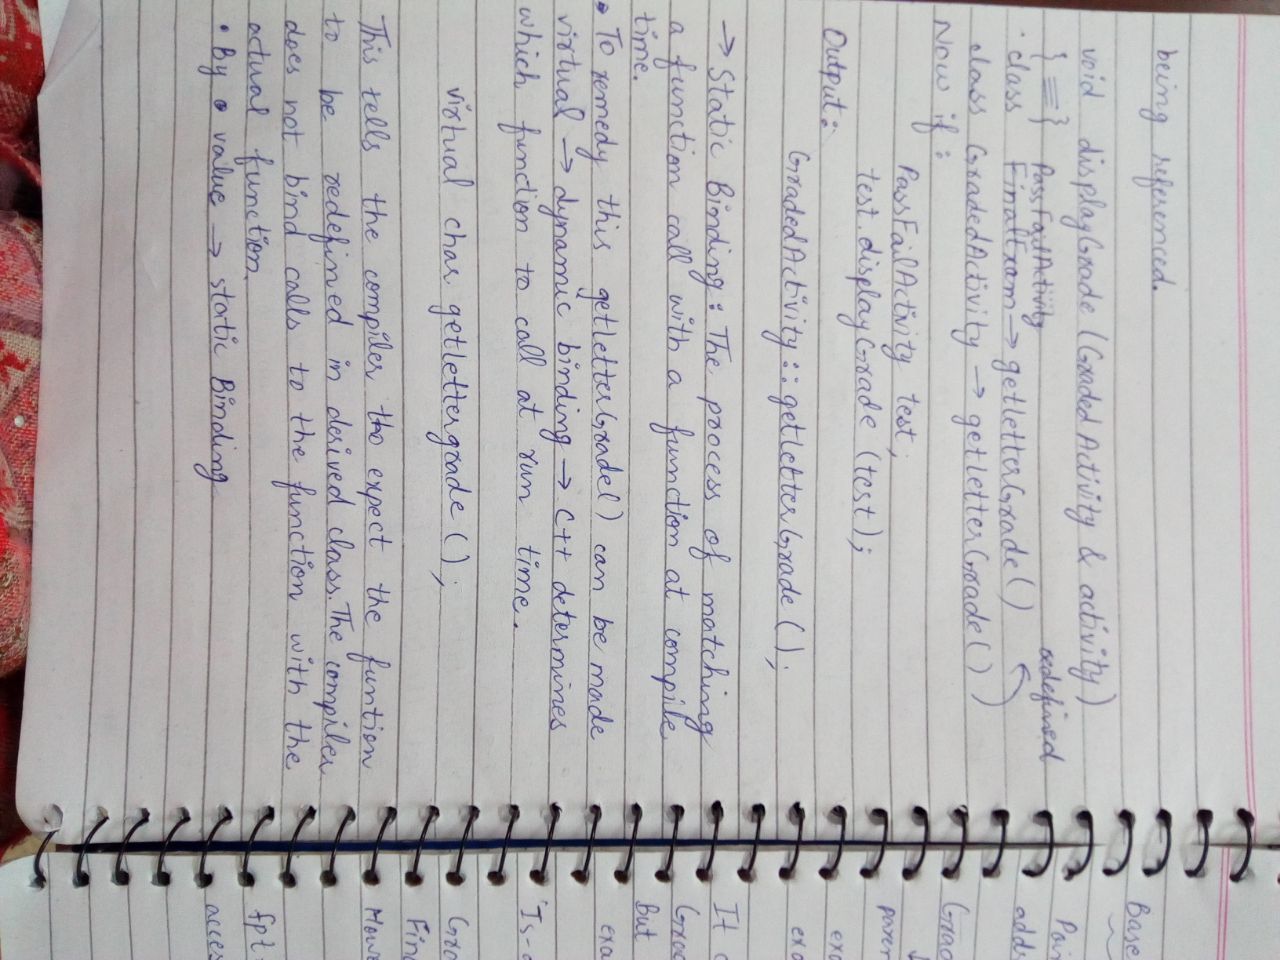 being referenced.
void displayGrade (Graded Activity & activity)
{ ≡ }
PassFailActivity
redefined
· class FinalExam → getLetterGrade()
class GradedActivity → getLetterGrade()
Now if :
PassFailActivity test;
test.displayGrade (test);
Output:
GradedActivity::getLetterGrade();
→ Static Binding: The process of matching
a function call with a function at compile
time.
• To remedy this getLetterGrade() can be made
virtual → dynamic binding → C++ determines
which function to call at run time.
virtual char getlettergrade();
This tells the compiler to expect the funtion
to be redefined in derived class. The compiler
does not bind calls to the function with the
actual function.
• By value → static Binding
Base
Poi
adds
Grad
paren
exa
exa
It c
Grad
But
exa
'Is-a
Gra
Fin
Howe
fpt
acces